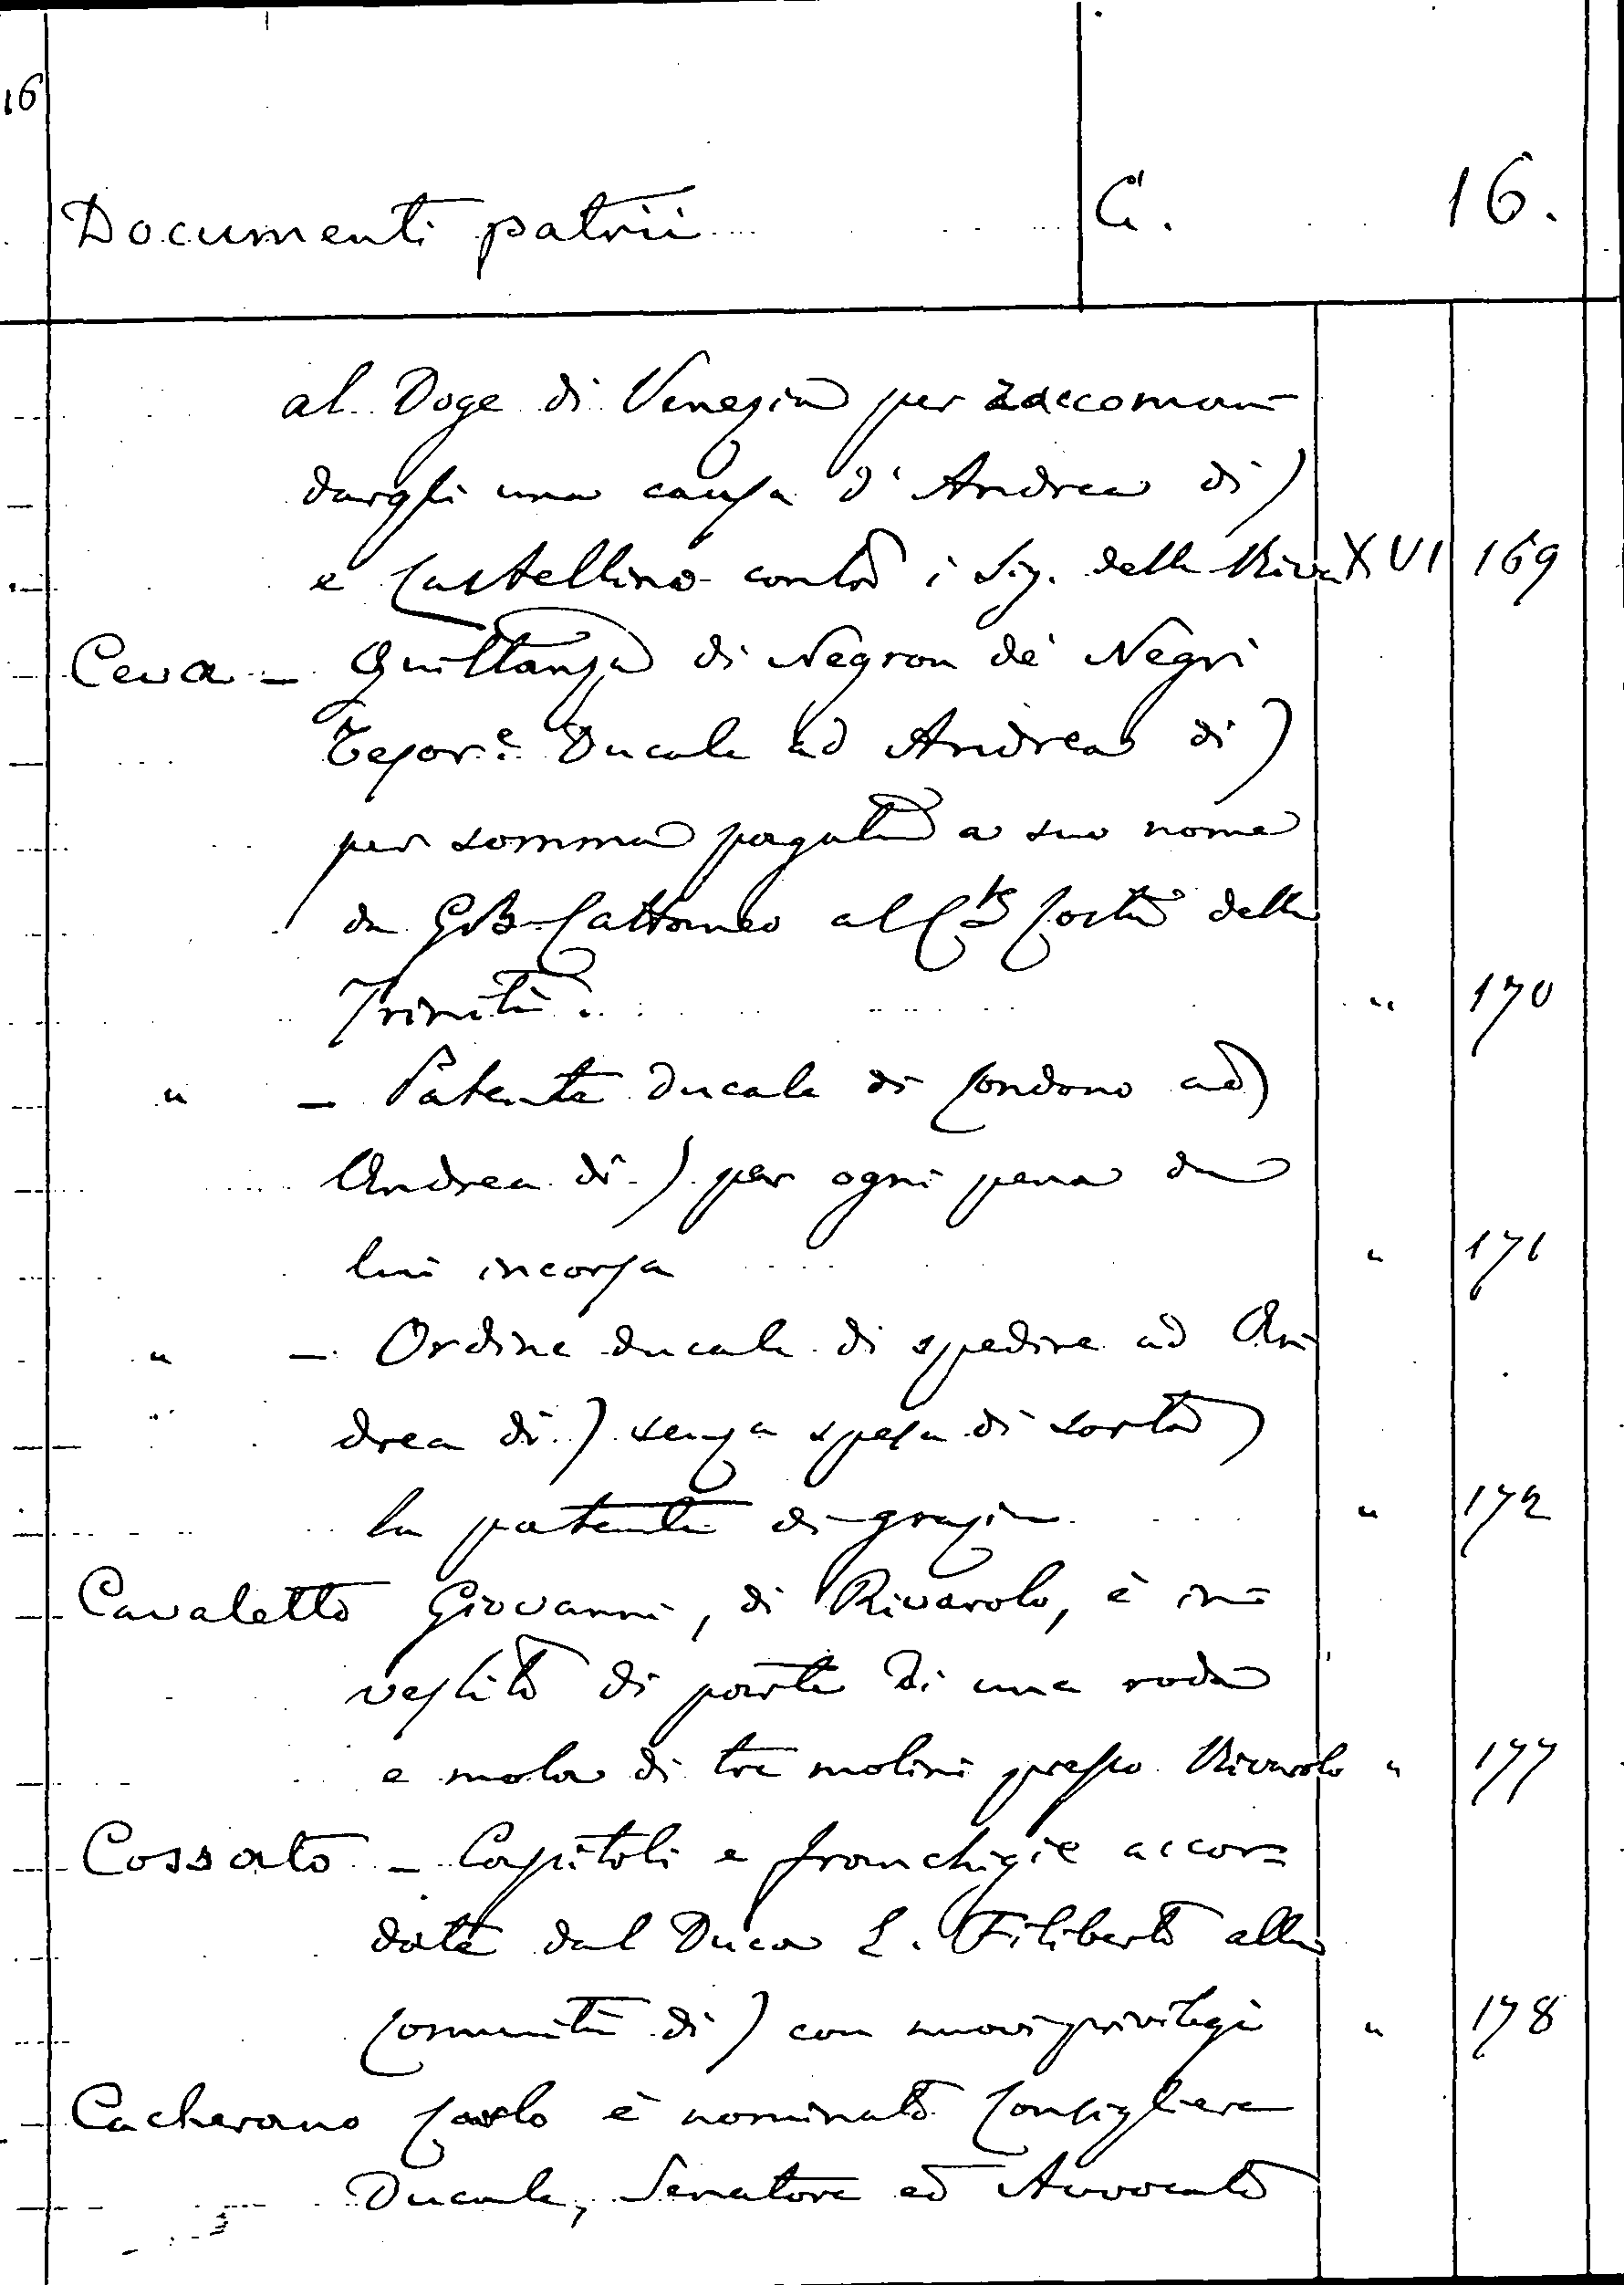 16
Documenti patrii C. 16.
al Doge di Venezia per raccoman-
dargli una causa d'Andrea di)
e Castellino contro i Sig. della Riva XVI 169
Ceva - Quittanza di Negron de' Negri
Tesor.e Ducale ad Andrea di)
per somma pagata a suo nome
da GB Cattaneo al Costa della
Trinità. " 170
" - Patente Ducale di condono ad)
Andrea di) per ogni pena da
lui incorsa " 171
" - Ordine ducale di spedire ad An
drea di) senza spesa di sorta)
la patente di grazia " 172
Cavaletto Giovanni, di Rivarolo, è in=
vestito di parte di una roda
e mola di tre molini presso Rivarolo " 177
Cossato - Capitoli e franchigie accor=
date dal Duca E. Filiberto alla
Comunità di) con nuovi privilegi " 178
Cacherano Carlo è nominato Consigliere
Ducale, Senatore ed Avvocato